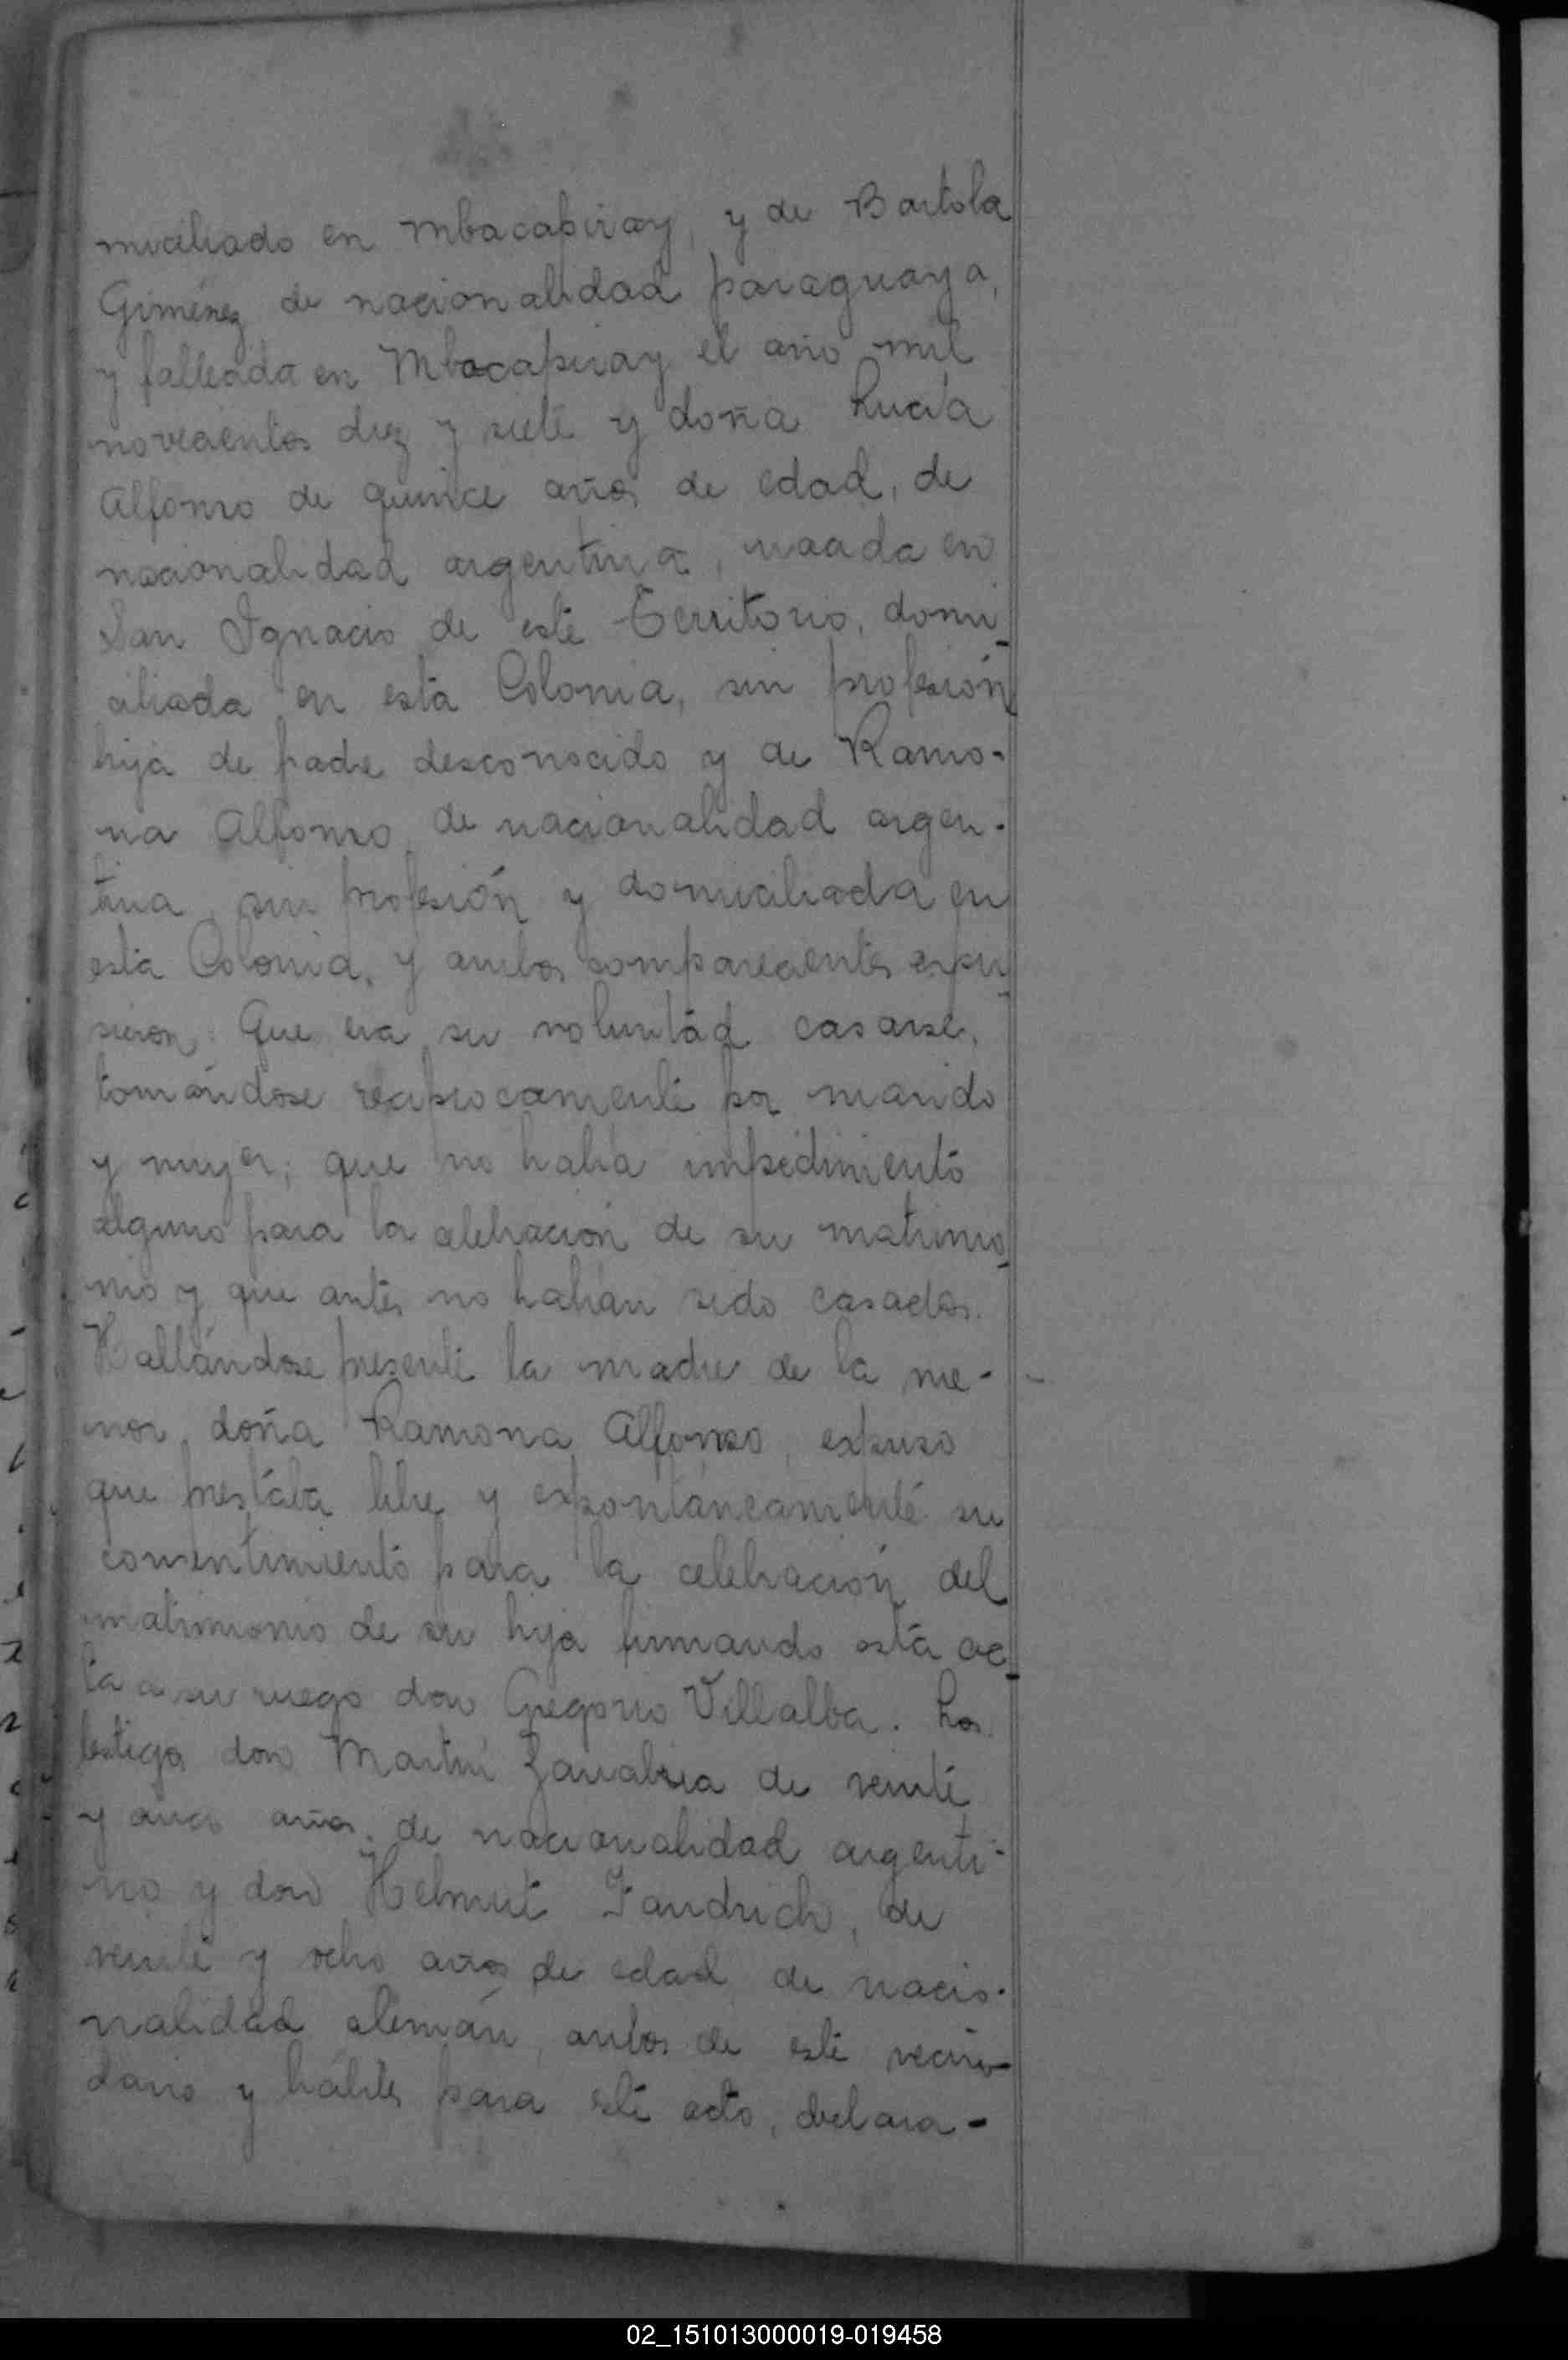 miciliado en Mbacapiray, y de Bartola
Giménez de nacionalidad paraguaya,
y fallecida en Mbocapiray el año mil
novecientos diez y siete y doña Lucía
Alfonso de quince años de edad, de
nacionalidad argentina, nacida en
San Ignacio de este Territorio, domi_
ciliada en esta Colonia, sin profesión
hija de padre desconocido y de Ramo-
na Alfonso de nacionalidad argen-
tina, sin profesión y domiciliada en
esta Colonia, y ambos comparecientes expu_
sieron: Que era su voluntad casarse,
tomándose reciprocamente por marido
y mujer; que no había impedimento
alguno para la celebración de su matrimo_
nio y que antes no habían sido casados.
Hallándose presente la madre de la me-
nor, doña Ramona Alfonso, expuso
que prestaba libre y expontáneamente su
consentimiento para la celebración del
matrimonio de su hija firmando esta ac_
ta a su ruego don Gregorio Villalba. Los
testigos don Martín Zanabria de veinte
y años, de nacionalidad argenti-
no y don Helmut Fandrich, de
veinte y ocho años de edad de nacio-
nalidad alemán, ambos de este vecin-
dario y hábiles para este acto, declara-
02_151013000019-019458